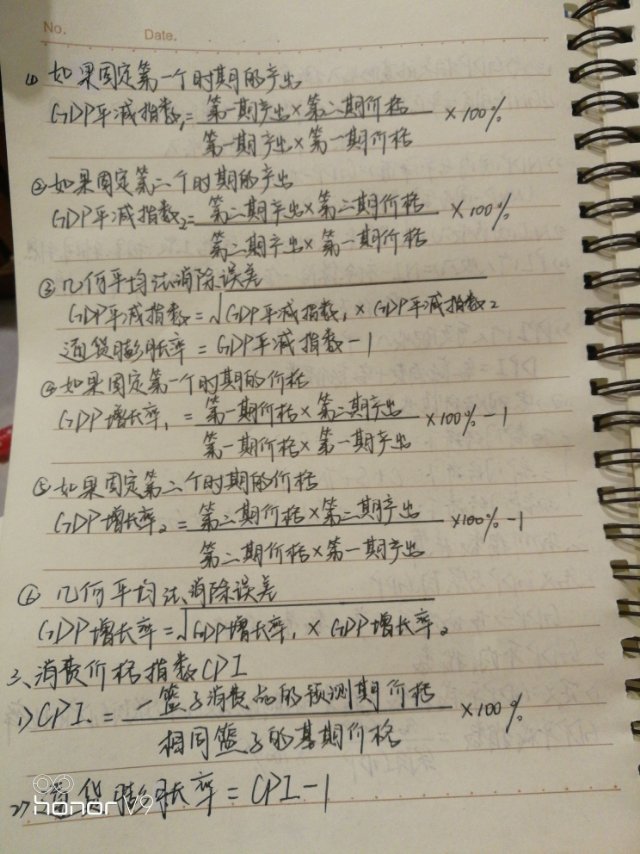 No.
Date.
① 如果固定第一个时期的产出
GDP平减指数₁ = 第一期产出×第二期价格 / 第一期产出×第一期价格 ×100%
② 如果固定第二个时期的产出
GDP平减指数₂ = 第二期产出×第二期价格 / 第二期产出×第一期价格 ×100%
③ 几何平均法消除误差
GDP平减指数 = √GDP平减指数₁ × GDP平减指数₂
通货膨胀率 = GDP平减指数-1
④ 如果固定第一个时期的价格
GDP增长率₁ = 第一期价格×第二期产出 / 第一期价格×第一期产出 ×100%-1
⑤ 如果固定第二个时期的价格
GDP增长率₂ = 第二期价格×第二期产出 / 第二期价格×第一期产出 ×100%-1
⑥ 几何平均法消除误差
GDP增长率 = √GDP增长率₁ × GDP增长率₂
三、消费价格指数CPI
1) CPI = 一篮子消费品的预测期价格 / 相同篮子的基期价格 ×100%
2) 通货膨胀率 = CPI-1
honor V9